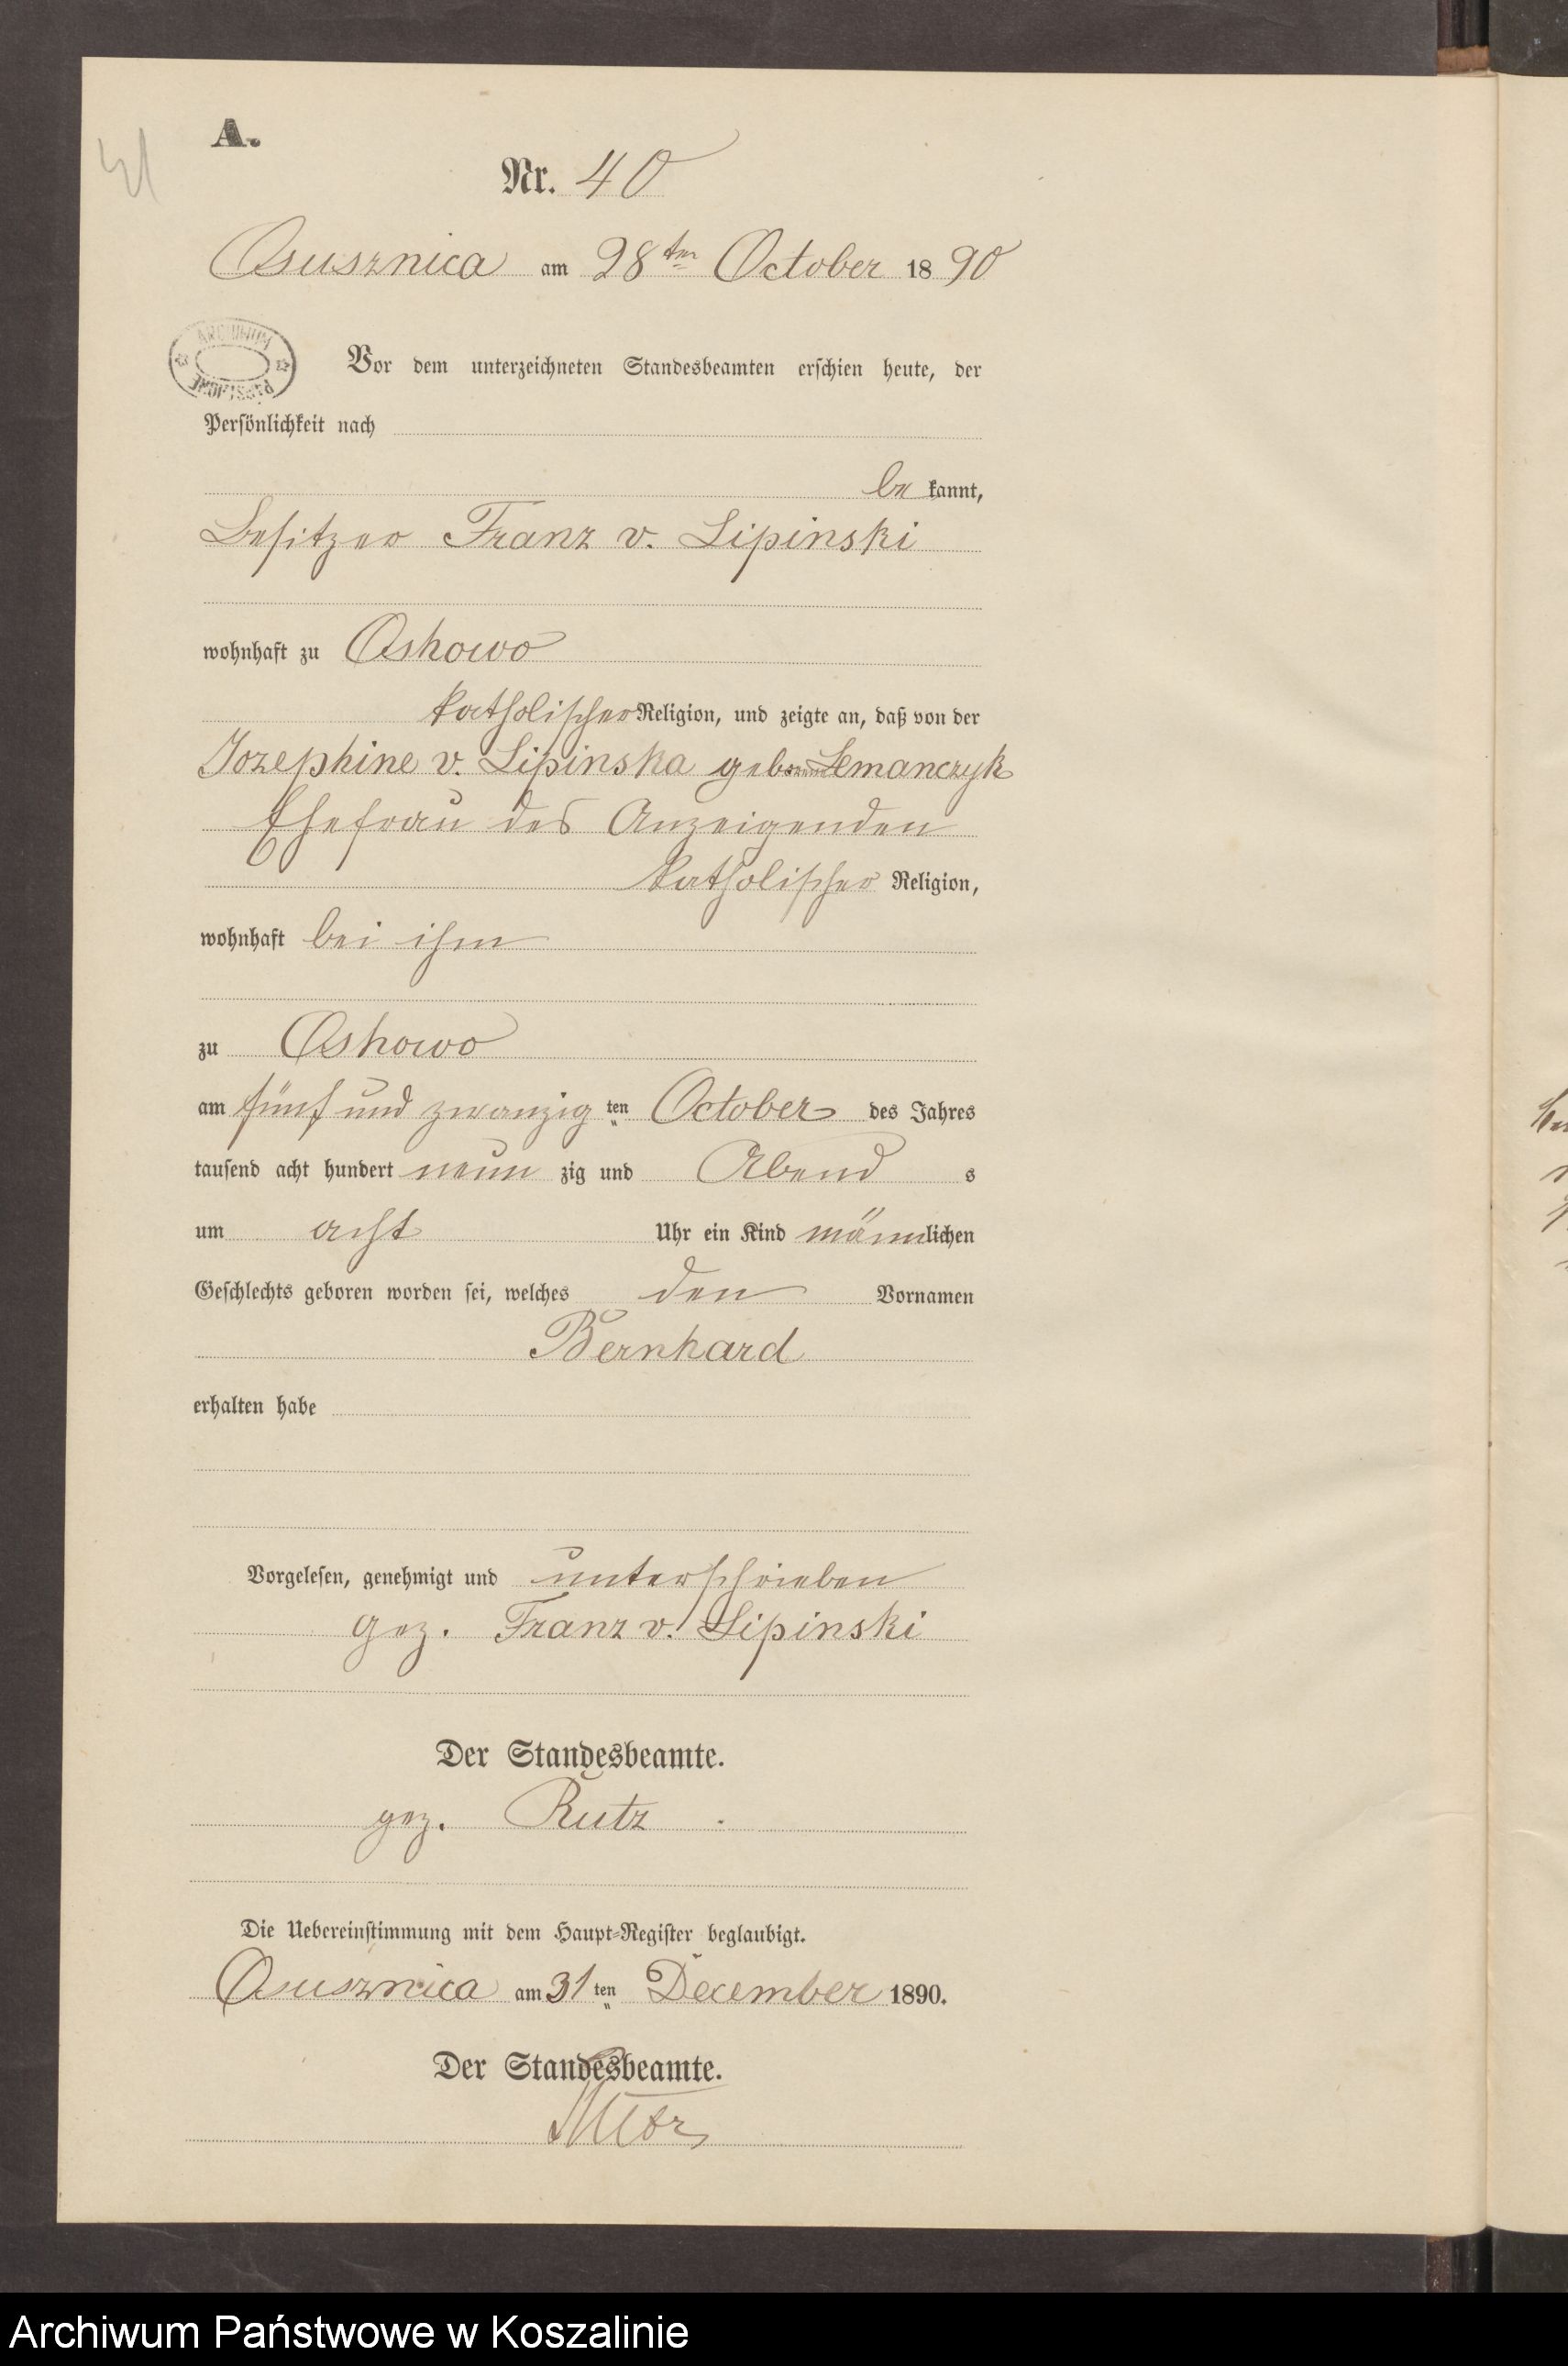 41
A.
Nr. 40
Osusznica am 28ten October 1890
ARCHIWUM
Vor dem unterzeichneten Standesbeamten erschien heute, der
Persönlichkeit nach
bekannt,
Besitzer Franz v. Lipinski
wohnhaft zu Oskowo
katholischer Religion, und zeigte an, daß von der
Jozephine v. Lipinska geborene Lemanczyk
Ehefrau des Anzeigenden
katholischer Religion,
wohnhaft bei ihm
zu Oskowo
am fünf und zwanzig ten October des Jahres
tausend acht hundert neun zig und Abend s
um acht Uhr ein Kind männlichen
Geschlechts geboren worden sei, welches den Vornamen
Bernhard
erhalten habe
Vorgelesen, genehmigt und unterschrieben
gez. Franz v. Lipinski
Der Standesbeamte.
gez. Rutz.
Die Uebereinstimmung mit dem Haupt-Register beglaubigt.
Osusznica am 31ten December 1890.
Der Standesbeamte.
Rutz
Archiwum Państwowe w Koszalinie